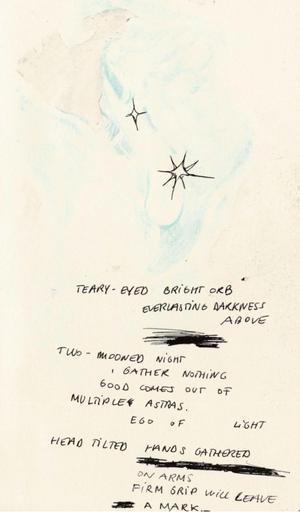 TEARY-EYED BRIGHT ORB
EVERLASTING DARKNESS
ABOVE
TWO-MOONED NIGHT
I GATHER NOTHING
GOOD COMES OUT OF
MULTIPLE ASTRAS.
EGO OF LIGHT
HEAD TILTED HANDS GATHERED
ON ARMS
FIRM GRIP WILL LEAVE
A MARK.